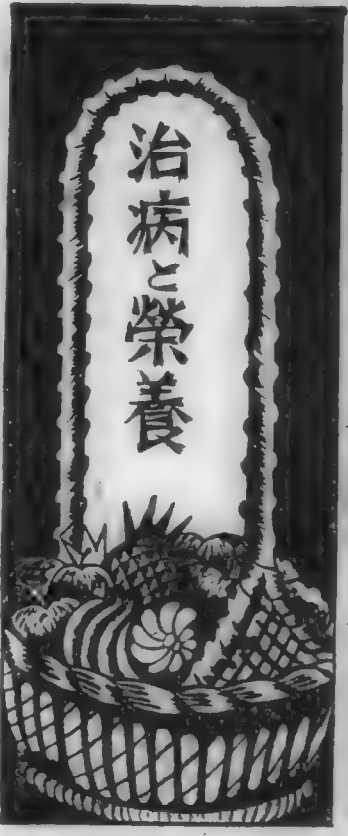 治病と榮養